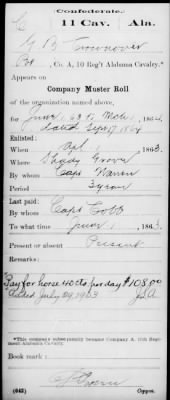 Confederate.
C 11 Cav. Ala.
G B Crownover
Pvt, Co. A, 10 Reg't Alabama Cavalry.*
Appears on
Company Muster Roll
of the organization named above,
for June 186
dated Sept 186
Enlisted:
When Apl 1, 1863.
Where Shady Grove
By whom Capt Warren
Period 3 years
Last paid:
By whom Capt Cobb
To what time June 1, 1863.
Present or absent Present
Remarks:
Pay for horse 40 cts per day $108.00
July 29, 1863
*This company subsequently became Company A, 11th Regiment Alabama Cavalry.
Book mark:
(642) Copyist.